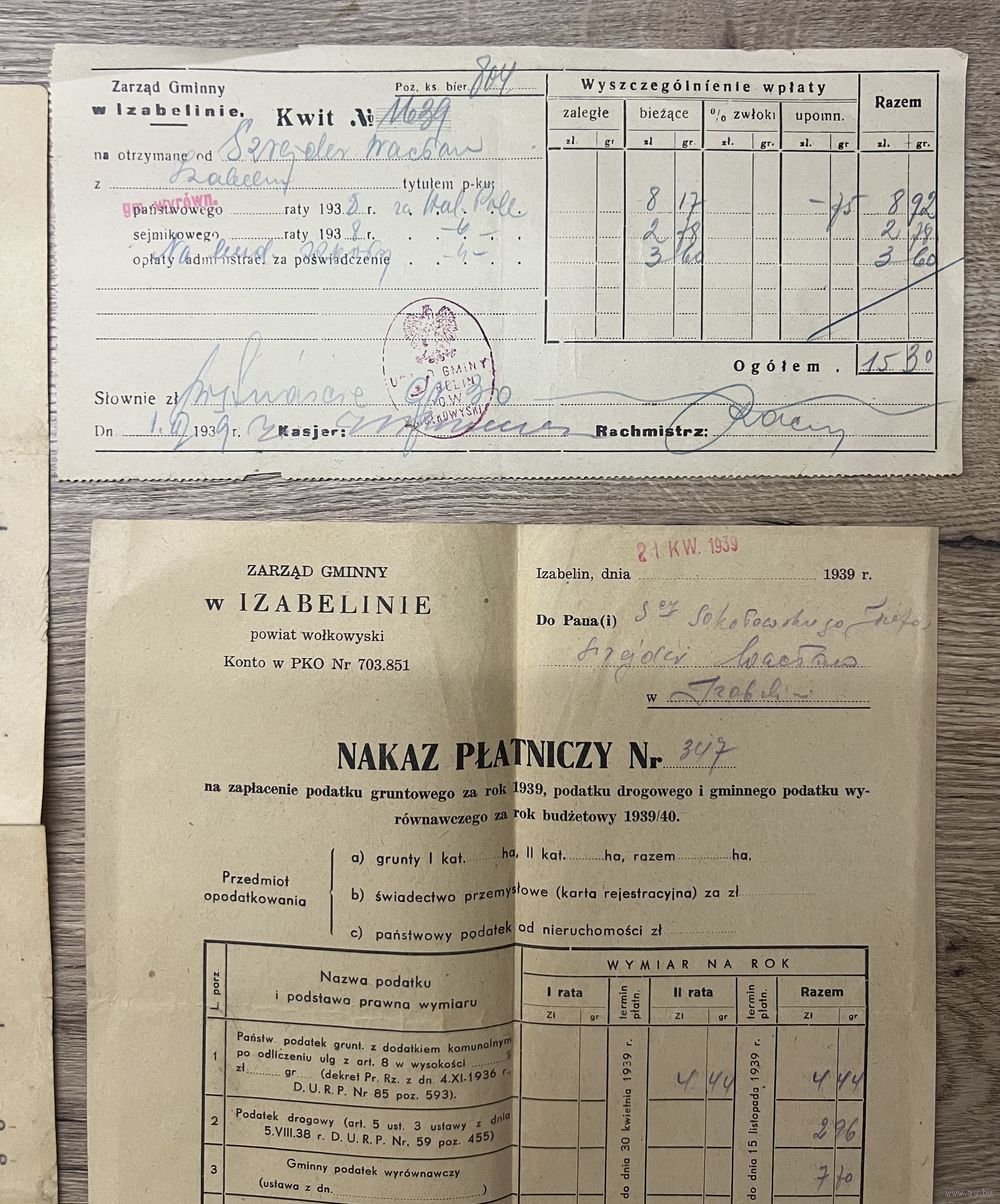 Zarząd Gminny
w Izabelinie.
Poz. ks. bier. 804
Kwit № 1639
na otrzymane od Szrejder Wacław
z Izabelin tytułem p-ku:
gm. wyrówn.
państwowego raty 1938 r. za
sejmikowego raty 1938 r.
opłaty administrac. za poświadczenie
Wyszczególnienie wpłaty
Razem
zaległe bieżące % zwłoki upomn.
zł. gr zł gr zł. gr. zł. gr zł. gr.
8 17 - 75 8 92
2 78 2 78
3 60 3 60
Ogółem . 15 30
URZĄD GMINY
Słownie zł piętnaście gr. 30
Dn. 1939 r. Kasjer: Rachmistrz:
21 KW. 1939
ZARZĄD GMINNY
w IZABELINIE
powiat wołkowyski
Konto w PKO Nr 703.851
Izabelin, dnia 1939 r.
Do Pana(i) Sokołowskiego
Szrejder Wacław
w Izabelin
NAKAZ PŁATNICZY Nr 347
na zapłacenie podatku gruntowego za rok 1939, podatku drogowego i gminnego podatku wy-
równawczego za rok budżetowy 1939/40.
Przedmiot
opodatkowania
a) grunty I kat. ha, II kat. ha, razem ha,
b) świadectwo przemysłowe (karta rejestracyjna) za zł
c) państwowy podatek od nieruchomości zł
L. porz.
Nazwa podatku
i podstawa prawna wymiaru
WYMIAR NA ROK
I rata termin płatn. II rata termin płatn. Razem
Zł gr Zł gr Zł gr
1 Państw. podatek grunt. z dodatkiem komunalnym
po odliczeniu ulg z art. 8 w wysokości %
zł gr (dekret Pr. Rz. z dn. 4.XI-1936 r.,
D. U. R. P. Nr 85 poz. 593).
4 44 4 44
2 Podatek drogowy (art. 5 ust. 3 ustawy z dnia
5.VIII.38 r. D. U. R. P. Nr. 59 poz. 455)
2 96
3 Gminny podatek wyrównawczy
(ustawa z dn. )
7 70
do dnia 30 kwietnia 1939 r.
do dnia 15 listopada 1939 r.
www.ay.by